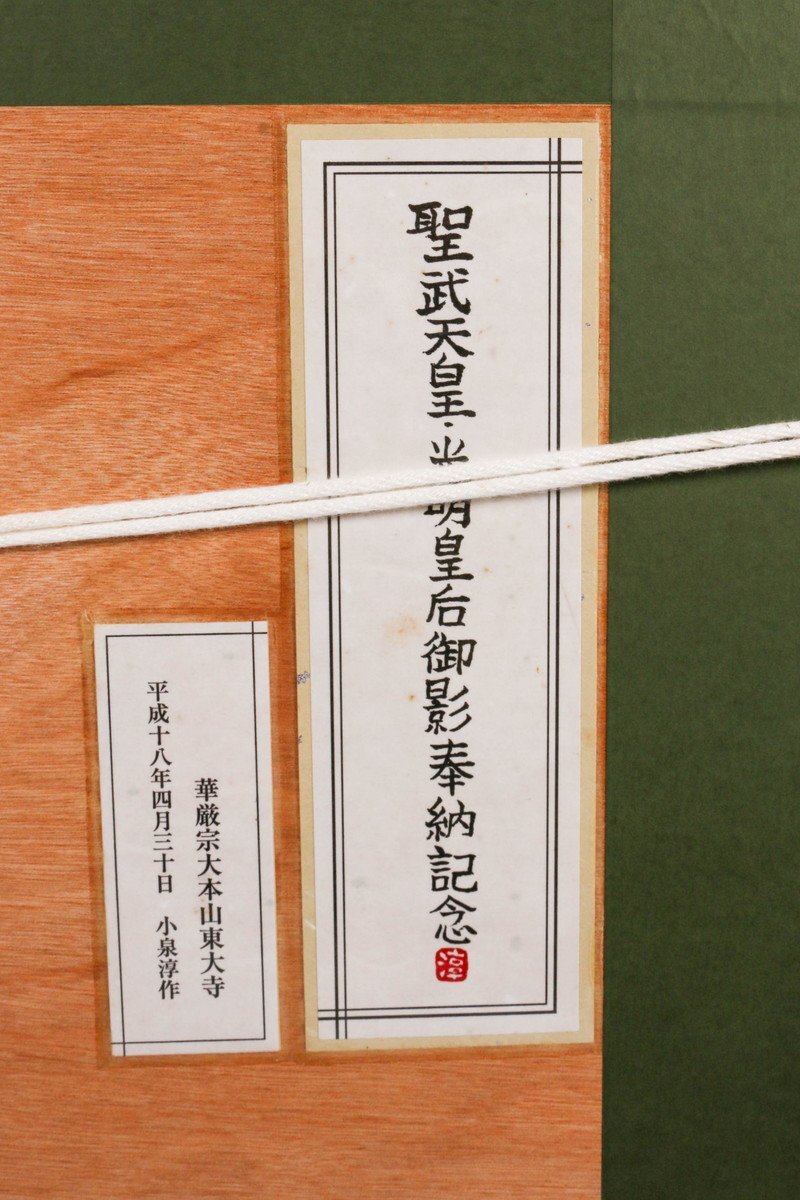 聖武天皇・光明皇后御影奉納記念
淳
華厳宗大本山東大寺
平成十八年四月三十日　小泉淳作